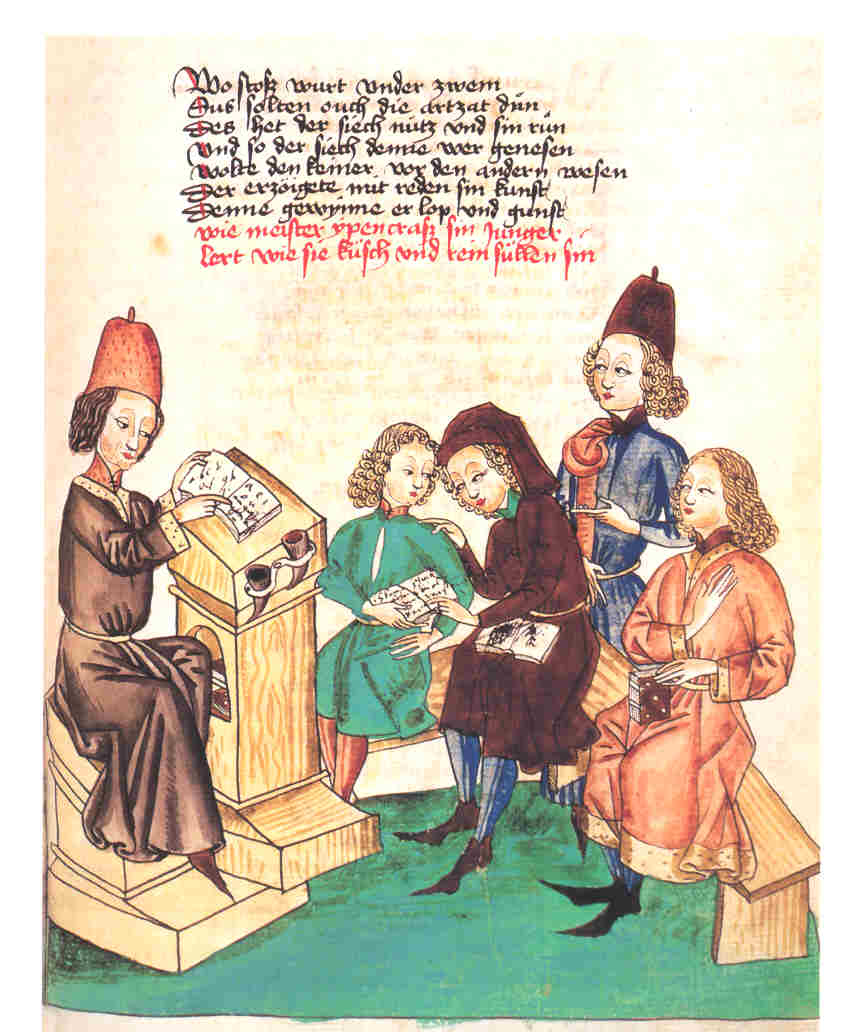 Wo stosz wurt vnder zwein
Sus solten ouch die artzat dun
Des het der siech nutz vnd sin run
Vnd so der siech denne wer genesen
Wolte denkeiner vor den andern wesen
Der erzöigete mit reden sin kunst
Denne gewynne er lop vnd gunst
wie meister ypencrasz sin junger
lert wie sie küsch vnd rein süllen sin